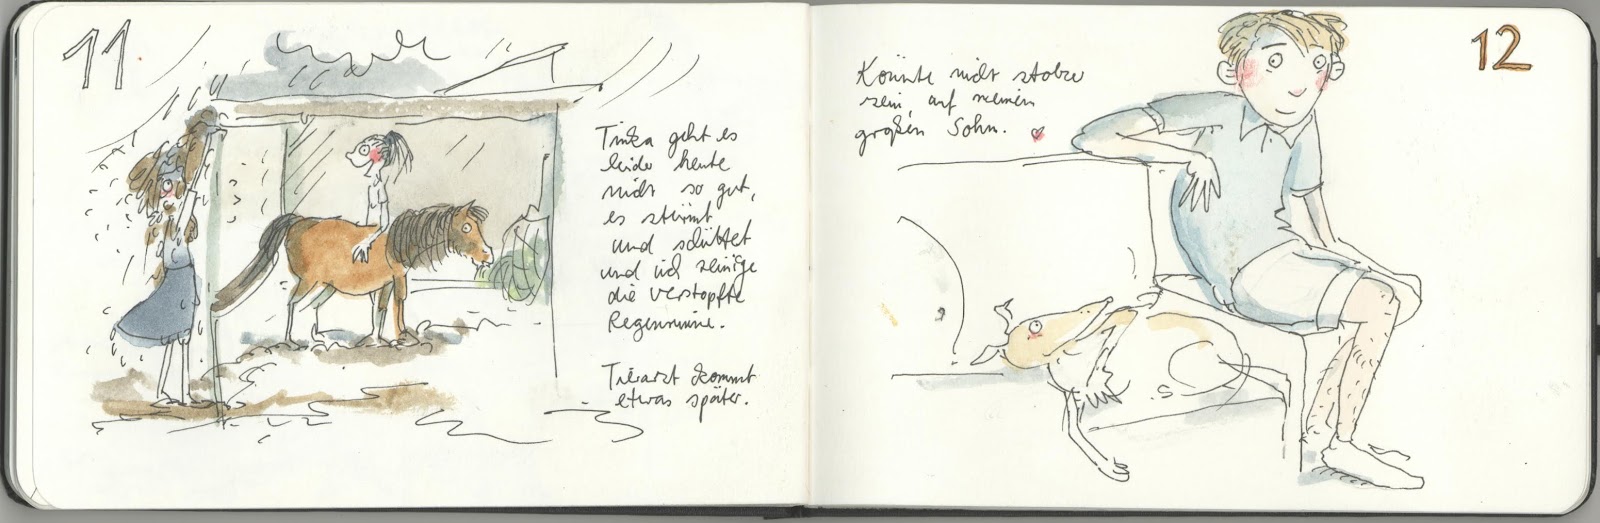 11
Tinka geht es
leider heute
nicht so gut,
es stürmt
und schüttet
und ich reinige
die verstopfte
Regenrinne.
Tierarzt kommt
etwas später.
Könnte nicht stolzer
sein, auf meinen
großen Sohn.
12